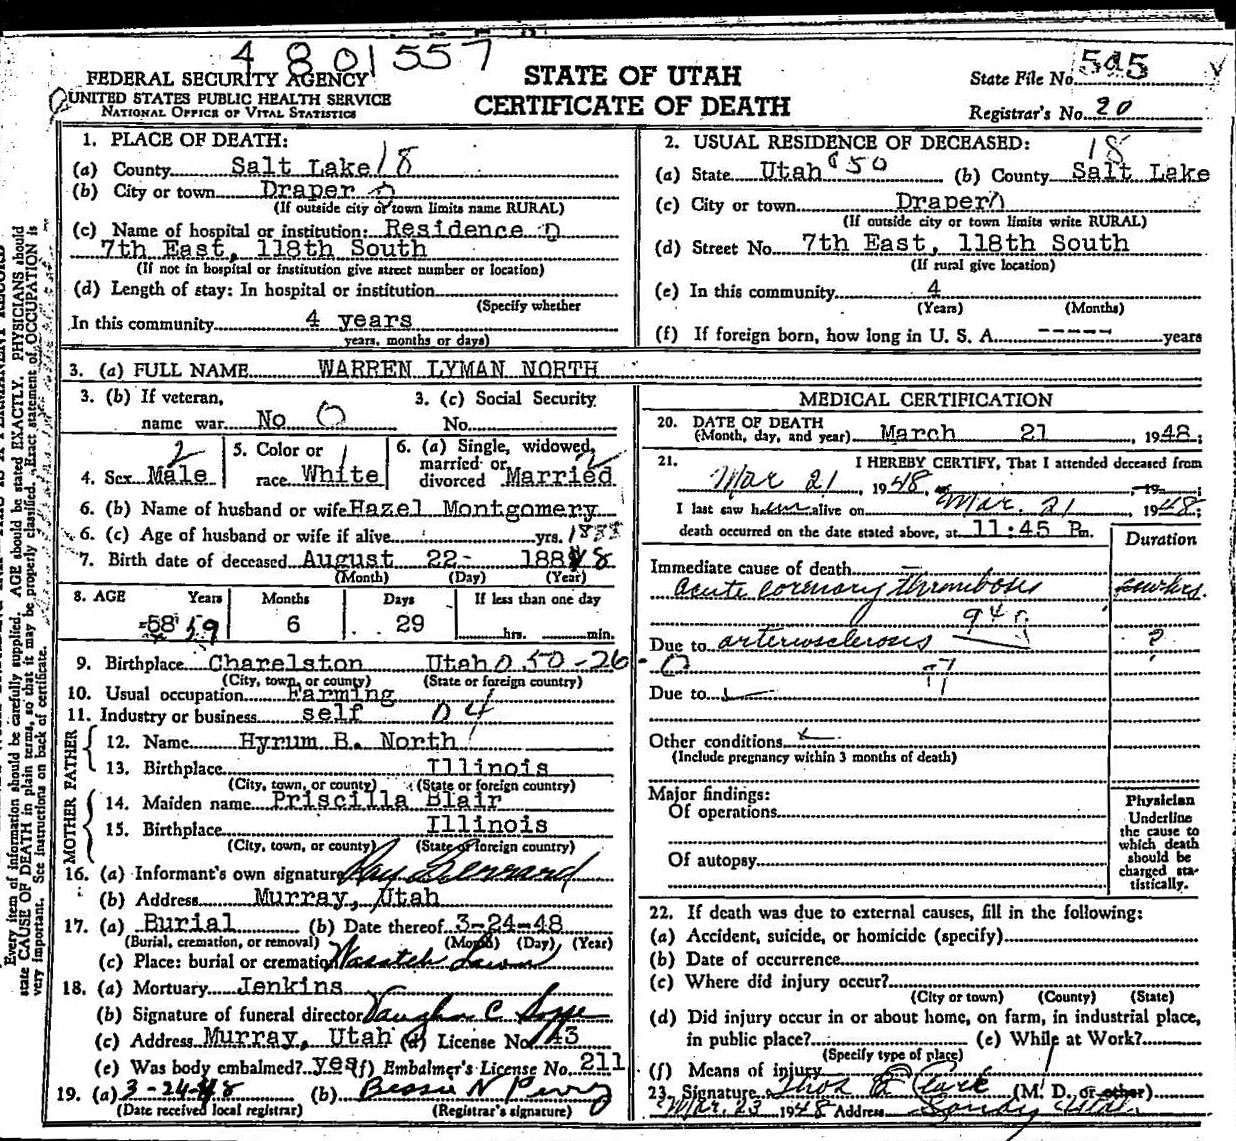 4801557
FEDERAL SECURITY AGENCY
UNITED STATES PUBLIC HEALTH SERVICE
NATIONAL OFFICE OF VITAL STATISTICS
STATE OF UTAH
CERTIFICATE OF DEATH
State File No. 505
Registrar's No. 20
1. PLACE OF DEATH:
(a) County Salt Lake 18
(b) City or town Draper
(If outside city or town limits name RURAL)
(c) Name of hospital or institution: Residence
7th East, 118th South
(If not in hospital or institution give street number or location)
(d) Length of stay: In hospital or institution
(Specify whether
In this community 4 years
years, months or days)
2. USUAL RESIDENCE OF DECEASED:
18
(a) State Utah 50 (b) County Salt Lake
(c) City or town Draper
(If outside city or town limits write RURAL)
(d) Street No. 7th East, 118th South
(If rural give location)
(e) In this community 4
(Years) (Months)
(f) If foreign born, how long in U. S. A. ----- years
3. (a) FULL NAME WARREN LYMAN NORTH
3. (b) If veteran, 3. (c) Social Security
name war No O No.
4. Sex Male 2
5. Color or race White 1
6. (a) Single, widowed, married or divorced Married 2
6. (b) Name of husband or wife Hazel Montgomery
6. (c) Age of husband or wife if alive yrs.
7. Birth date of deceased August 22- 188 8
(Month) (Day) (Year)
8. AGE Years Months Days If less than one day
58 59 6 29 hrs. min.
9. Birthplace Charelston Utah 0 50-26-0
(City, town, or county) (State or foreign country)
10. Usual occupation Farming
11. Industry or business self 04
FATHER
12. Name Hyrum B. North
13. Birthplace Illinois
(City, town, or county) (State or foreign country)
MOTHER
14. Maiden name Priscilla Blair
15. Birthplace Illinois
(City, town, or county) (State or foreign country)
16. (a) Informant's own signature
(b) Address Murray, Utah
17. (a) Burial (b) Date thereof 3-24-48
(Burial, cremation, or removal) (Month) (Day) (Year)
(c) Place: burial or cremation Wasatch Lawn
18. (a) Mortuary Jenkins
(b) Signature of funeral director Vaughn C
(c) Address Murray, Utah (d) License No. 43
(e) Was body embalmed? yes (f) Embalmer's License No. 211
19. (a) 3-24-48 (b) Bessie N Perry
(Date received local registrar) (Registrar's signature)
MEDICAL CERTIFICATION
20. DATE OF DEATH
(Month, day, and year) March 21, 1948;
21. I HEREBY CERTIFY, That I attended deceased from
Mar 21, 1948, Mar. 21, 19
I last saw him alive on 1948;
death occurred on the date stated above, at 11:45 Pm.
Duration
Immediate cause of death
Acute coronary thrombosis
94
Due to arteriosclerosis ?
Due to
Other conditions
(Include pregnancy within 3 months of death)
Major findings:
Of operations
Of autopsy
Physician
Underline
the cause to
which death
should be
charged sta-
tistically.
22. If death was due to external causes, fill in the following:
(a) Accident, suicide, or homicide (specify)
(b) Date of occurrence
(c) Where did injury occur?
(City or town) (County) (State)
(d) Did injury occur in or about home, on farm, in industrial place,
in public place? (e) While at Work?
(Specify type of place)
(f) Means of injury
23. Signature Clark (M. D. or other)
Mar. 23 1948 Address Sandy Utah
Every item of information should be carefully supplied. AGE should be stated EXACTLY. PHYSICIANS should
state CAUSE OF DEATH in plain terms, so that it may be properly classified. Exact statement of OCCUPATION is
very important. See instructions on back of certificate.